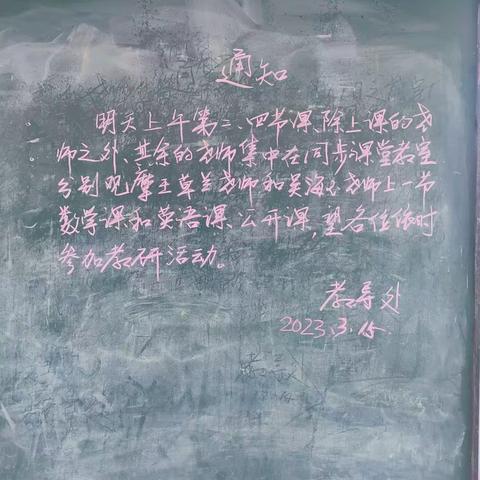 通知
明天上午第三、四节课,除上课的老
师之外、其余的老师集中在同步课堂教室
分别观摩王草兰老师和吴海老师上一节
数学课和英语课、公开课,望各位依时
参加教研活动。
教导处
2023.3.15.